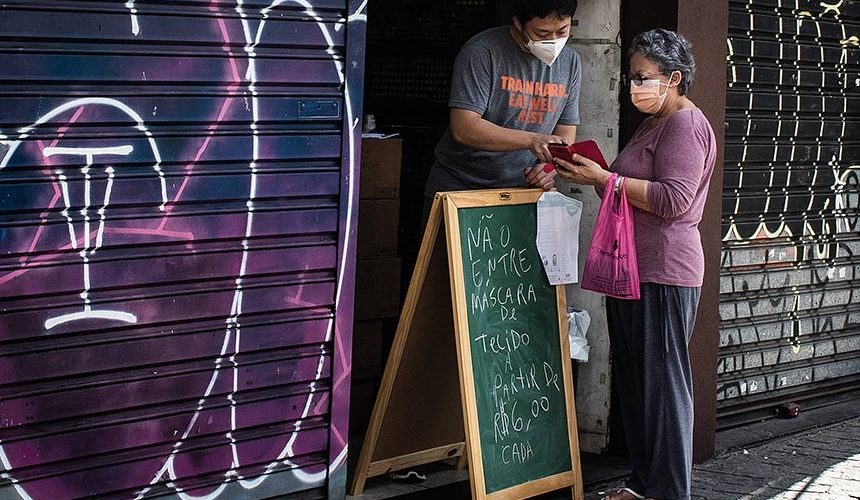 TRAIN HARD.
EAT WELL
REST.
NÃO
ENTRE
MÁSCARA
DE
TECIDO
A
PARTIR DE
R$6,00
CADA